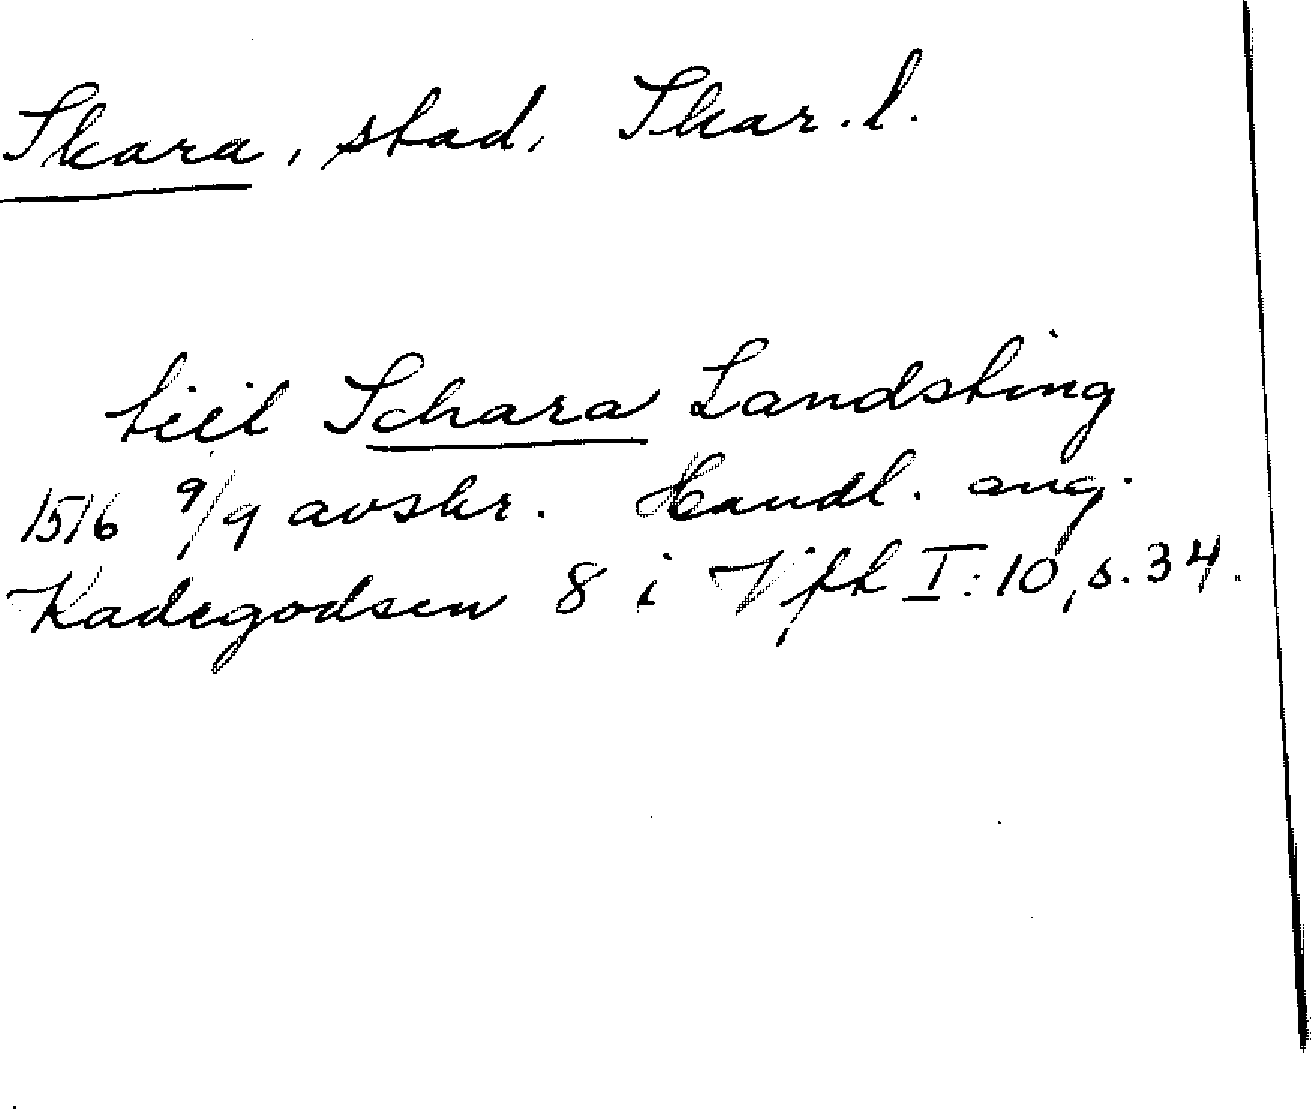 Skara, stad, Skar. l.
tiil Schara Landsting
1516 9/9 avskr. Handl. ang.
Kadegodsen 8 i Vfh I:10, s. 34.